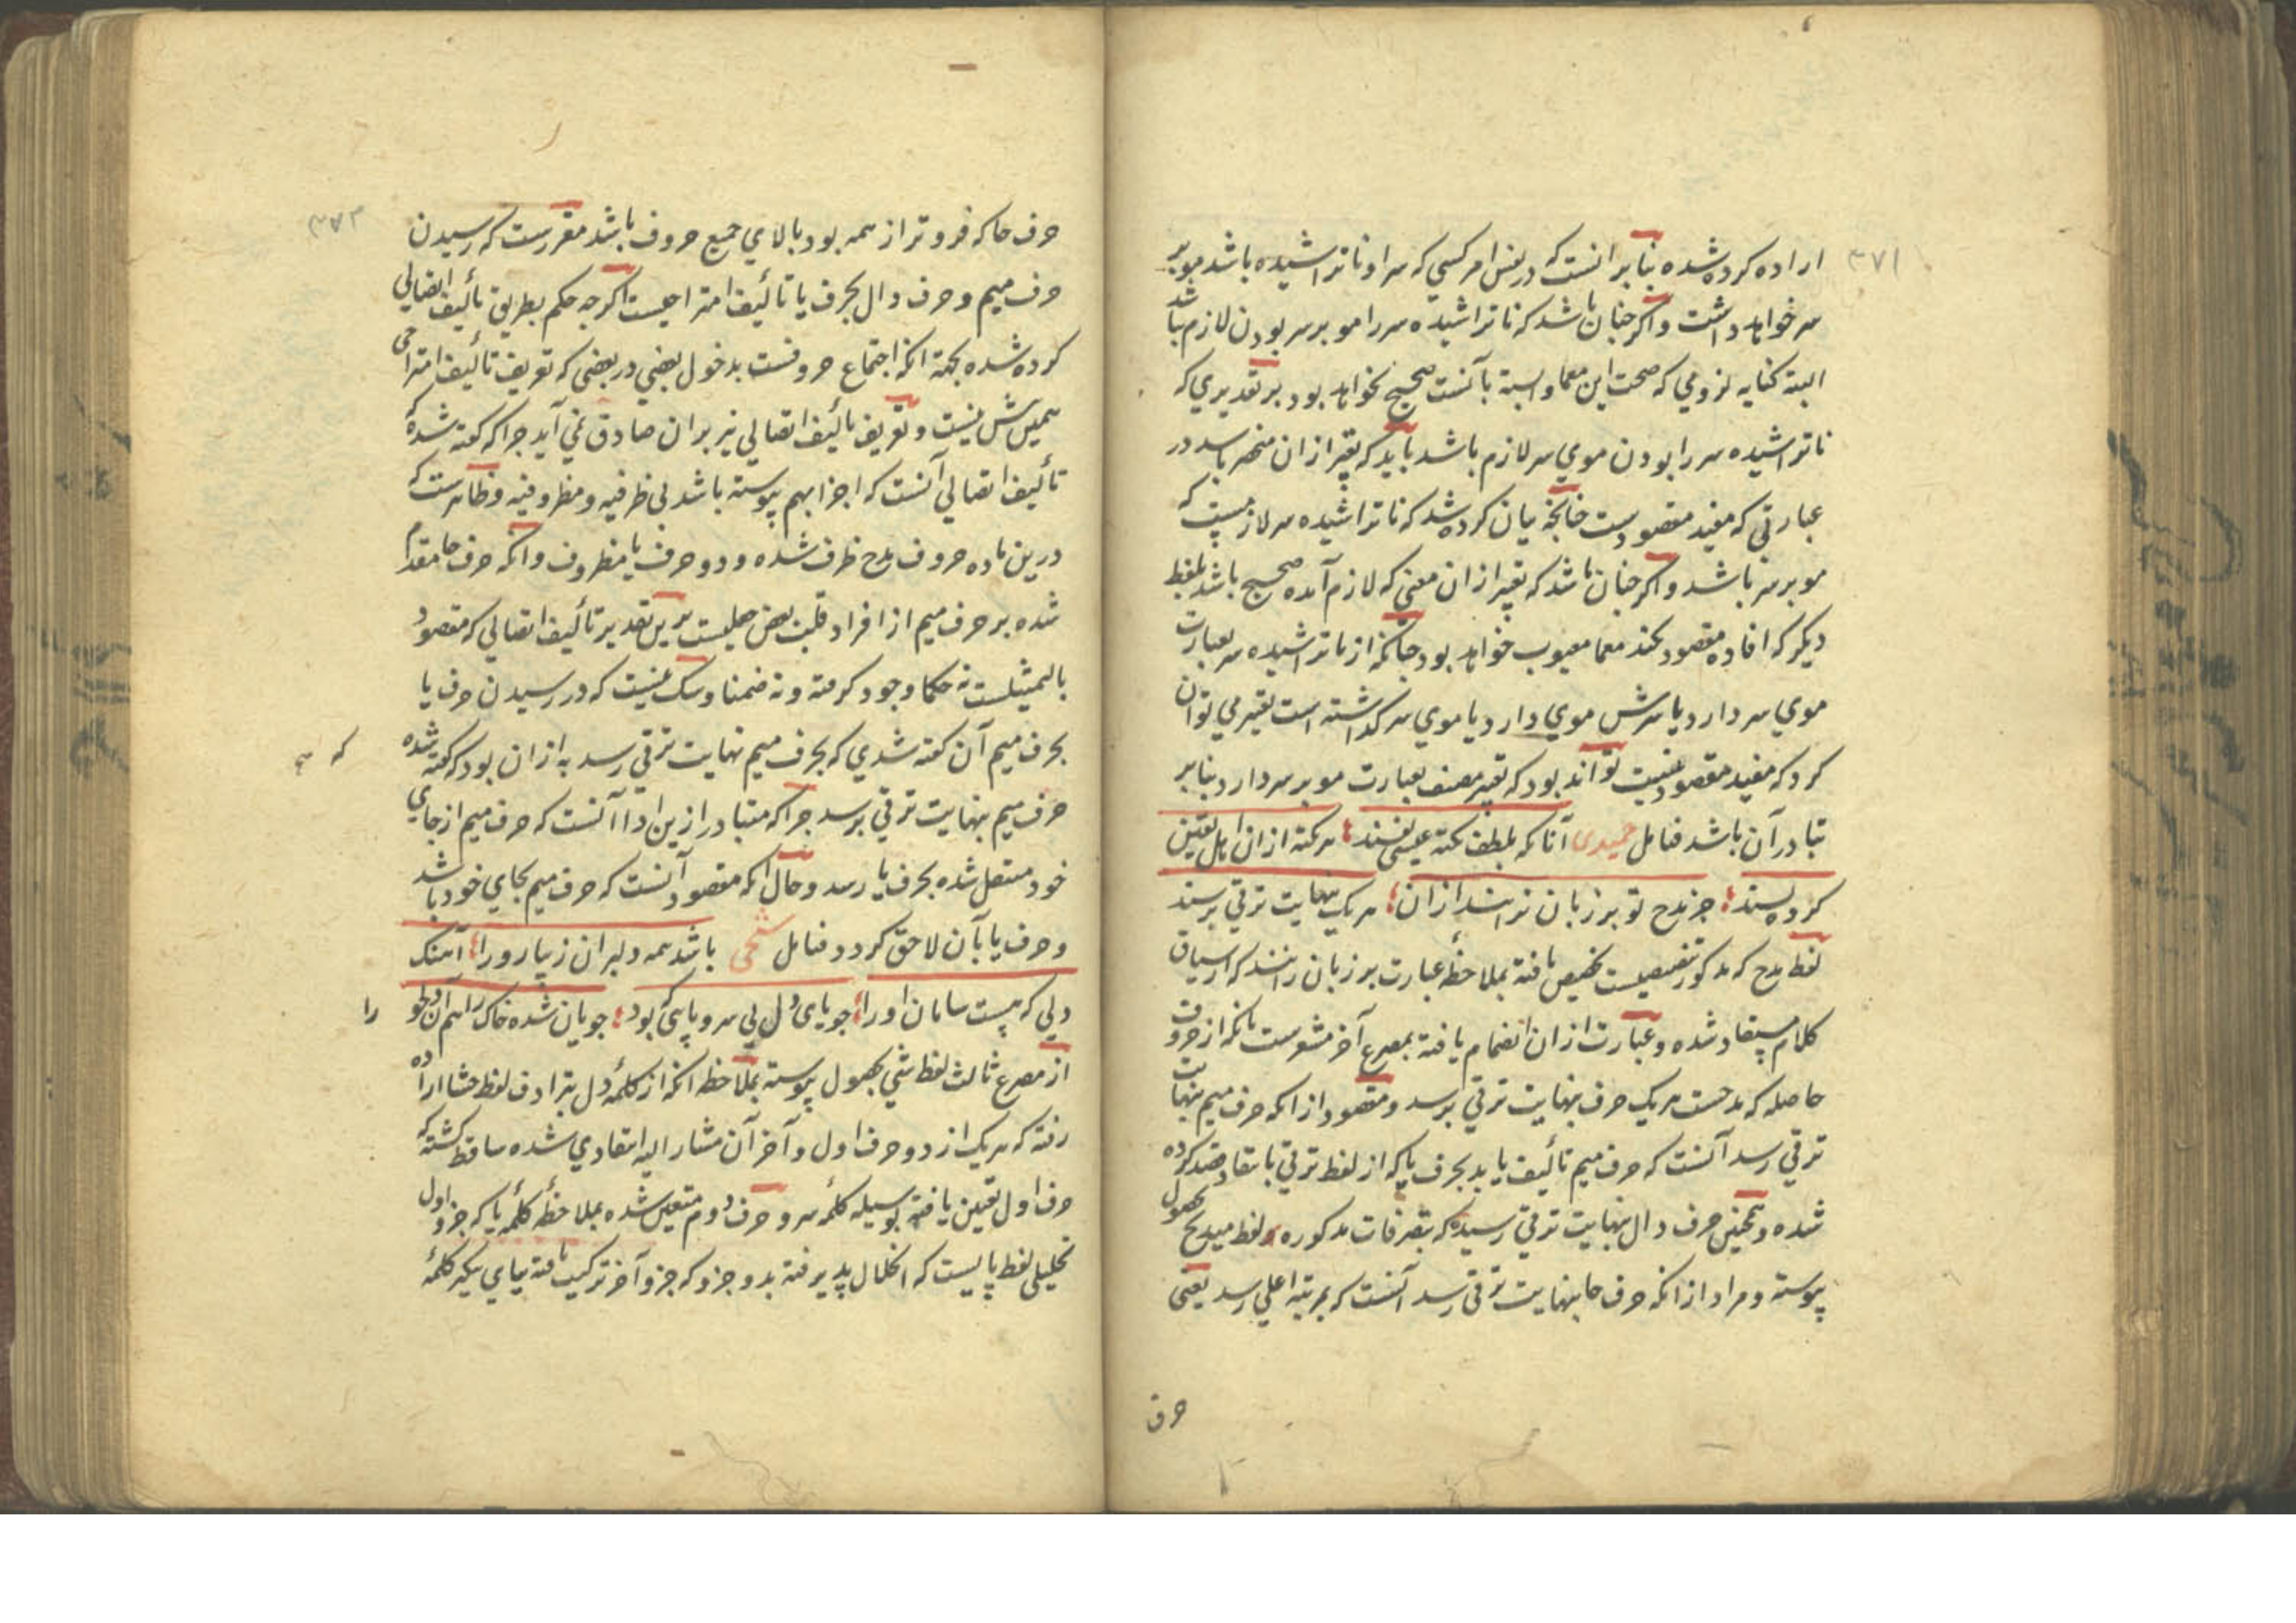 ۳۷۱
اراده کرده شده بنابر انست که در نفس امر کسی که سر او ناتراشیده باشد مو بر
سر خواهد داشت و اکر چنان باشد که ناتراشیده سر را مو بر سر بودن لازم باشد
البته کنایه لزومی که صحت این معما وابسته بآنست صحیح نخواهد بود بر تقدیری که
ناتراشیده سر را بودن موی سر لازم باشد باید که تعبیر ازان منحصر باشد در
عبارتی که مفید مقصودست چنانچه بیان کرده شد که ناتراشیده سر لازمست که
مو بر سر باشد و اکر چنان باشد که تعبیر ازان معنی که لازم آمده صحیح باشد بلفظ
دیکر که افاده مقصود نکند معما معیوب خواهد بود چنانکه از ناتراشیده سر بعبارت
موی سر دارد یا سرش موی دارد یا موی سر کذاشته است تعبیر می توان
کرد که مفید مقصود نیست تواند بود که تعبیر مصنف بعبارت مو بر سر دارد بنابر
تبادر آن باشد فتامل حمیدی آنانکه بلطف نکته عیسی نفسند هر نکته ازان اهل یقین
کرده پسند جز مدح تو بر زبان نرانند ازان هر یک بنهایت ترقی برسند
لفظ مدح که مذکور تنصیصیست تخصیص یافته بملاحظه عبارت بر زبان رانند که از سیاق
کلام مستفاد شده و عبارت ازان انضمام یافته بمصرع آخر مشعرست بانکه از حروف
حاصله که مدحست هر یک حرف بنهایت ترقی برسد و مقصود ازانکه حرف میم بنهایت
ترقی رسد آنست که حرف میم تألیف یابد بحرف یا که از لفظ ترقی بانتقاد قصد کرده
شده و همچنین حرف دال بنهایت ترقی رسیده که بتصرفات مذکوره لفظ میدیح بحصول
پیوسته و مراد ازانکه حرف حا بنهایت ترقی رسد آنست که بمرتبه اعلی رسد یعنی
حرف
۳۷۲
حرف حا که فروتر از همه بود بالای جمیع حروف باشد مقررست که رسیدن
حرف میم و حرف دال بحرف یا تألیف امتزاجیست اکرچه حکم بطریق تألیف اتصالی
کرده شده بجهة انکه اجتماع حروفست بدخول بعضی در بعضی که تعریف تألیف امتزاجی
همین نیست و تعریف تألیف اتصالی نیز بران صادق نمی آید چرا که کفته شده که
تألیف اتصالی آنست که اجزا بهم پیوسته باشد بی ظرفیه و مظروفیه و ظاهرست که
درین ماده حروف مدح ظرف شده و دو حرف یا مظروف و انکه حرف حا مقدم
شده بر حرف میم از افراد قلب بعض جلیست برین تقدیر تألیف اتصالی که مقصود
بالتمثیلست نه حکما وجود کرفته و نه ضمنا و شک نیست که در رسیدن حرف یا
بحرف میم آن کفته شدی که بحرف میم نهایت ترقی رسد به ازان بود که کفته شده
که
حرف میم بنهایت ترقی برسد چرا که متبادر ازین ادا آنست که حرف میم از جای
خود منتقل شده بحرف یا رسد و حال انکه مقصود آنست که حرف میم بجای خود باشد
و حرف یا بآن لاحق کردد فتامل باشد همه دلبران زیبا رو را آهنک
دلی که نیست سامان او را جویای دل بی سر و پایی که بود جویان شده خاک راهم آن دلجو
را
از مصرع ثالث لفظ شی بحصول پیوسته بملاحظه انکه از کلمه دل بترادف لفظ حشا اراده
رفته که هر یک از دو حرف اول و آخر آن مشار الیه انتقادی شده ساقط کشته که
حرف اول تعین یافته بوسیله کلمه سر و حرف دوم متعین شده بملاحظه کلمه پا که جزو اول
تحلیلی لفظ پاییست که انحلال پذیرفته بدو جزو که جزو آخر ترکیب یافته بیای کلمه